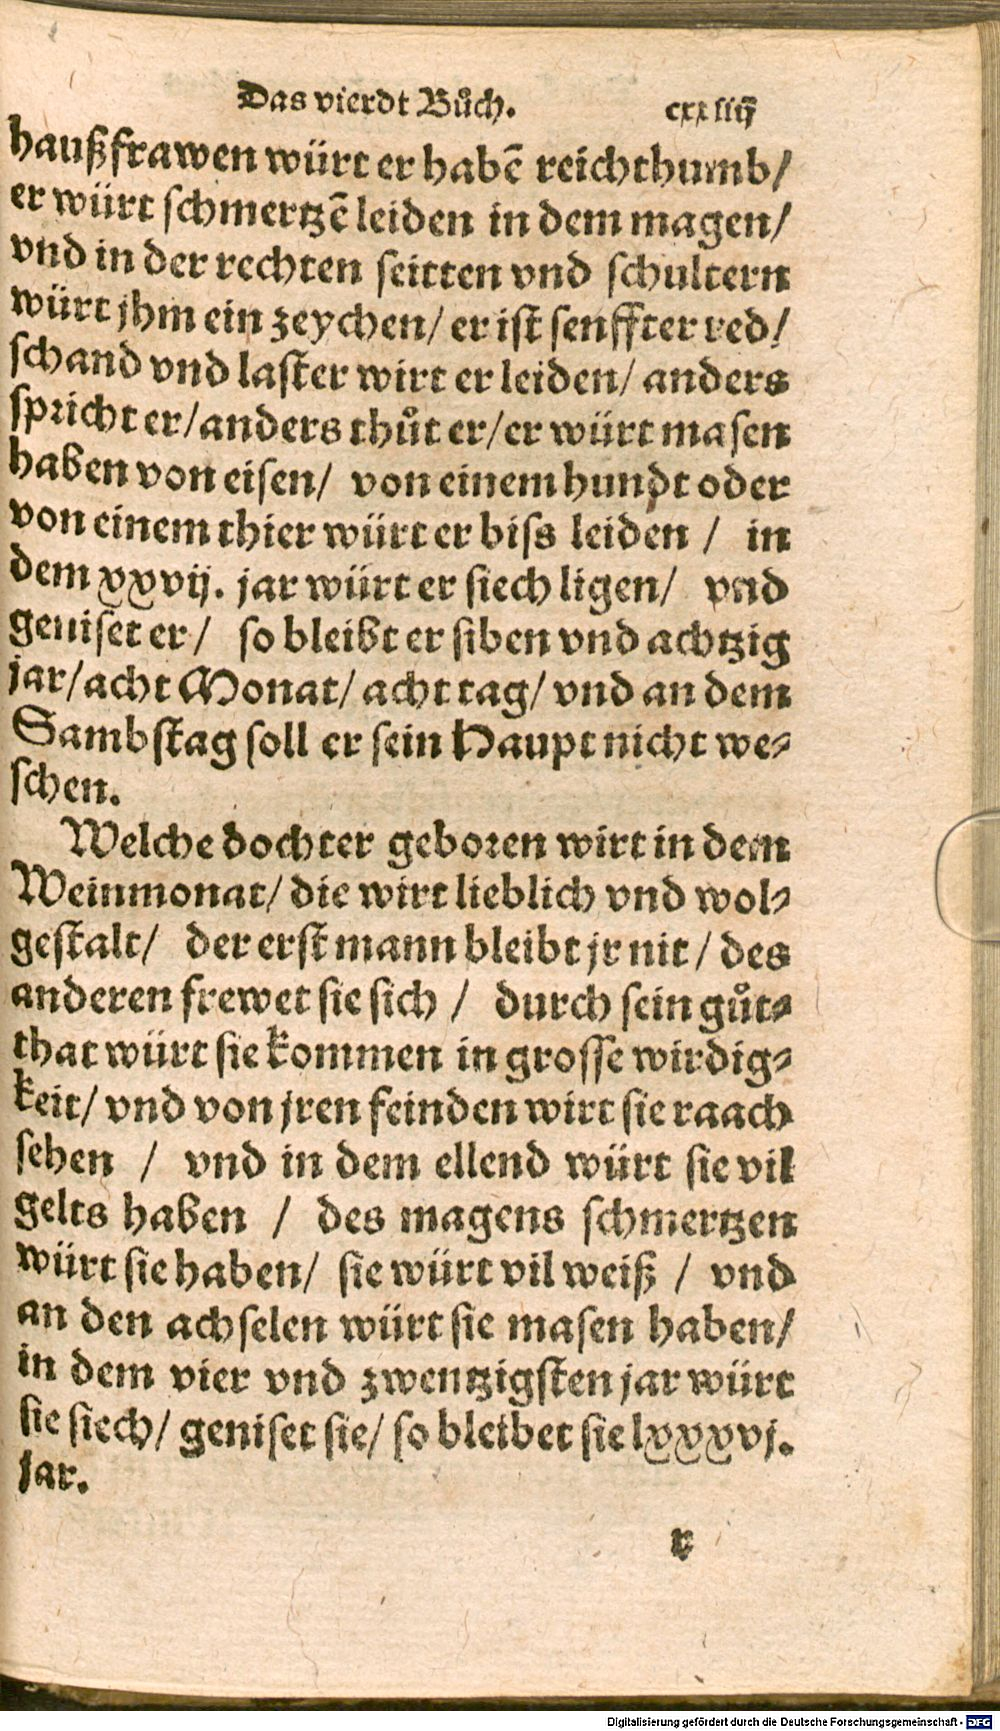 Das vierdt Bůch.
haußfrawen würt er habē reichthumb/
er würt schmertzē leiden in dem magen/
vnd in der rechten seitten vnd schultern
würt jhm ein zeychen/ er ist senffter red/
schand vnd laster wirt er leiden/ anders
spricht er/ anders thůt er/ er würt masen
haben von eisen/ von einem hundt oder
von einem thier würt er biss leiden / in
dem xxvij. jar würt er siech ligen/ vnd
geniset er/ so bleibt er siben vnd achtzig
jar/ acht Monat/ acht tag/ vnd an dem
Sambstag soll er sein Haupt nicht we⸗
schen.
Welche dochter geboren wirt in dem
Weinmonat/ die wirt lieblich vnd wol⸗
gestalt/ der erst mann bleibt jr nit / des
anderen frewet sie sich / durch sein gůt⸗
that würt sie kommen in grosse wirdig⸗
keit/ vnd von jren feinden wirt sie raach
sehen / vnd in dem ellend würt sie vil
gelts haben / des magens schmertzen
würt sie haben/ sie würt vil weiß / vnd
an den achselen würt sie masen haben/
in dem vier vnd zwentzigsten jar würt
sie siech/ geniset sie/ so bleibet sie lxxxvj.
jar.
r
Digitalisierung gefördert durch die Deutsche Forschungsgemeinschaft - DFG